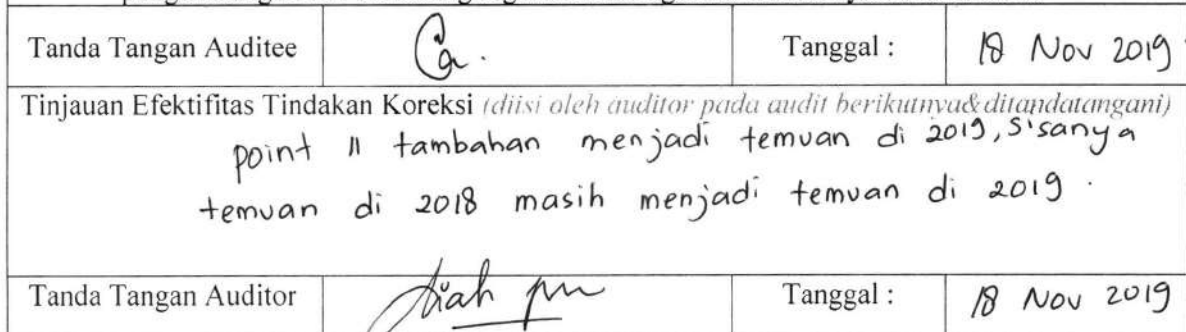 Tanda Tangan Auditee
Tanggal :
18 Nov 2019
Tinjauan Efektifitas Tindakan Koreksi (diisi oleh auditor pada audit berikutnya& ditandatangani)
point 11 tambahan menjadi temuan di 2019, sisanya
temuan di 2018 masih menjadi temuan di 2019.
Tanda Tangan Auditor
Tanggal :
18 Nov 2019